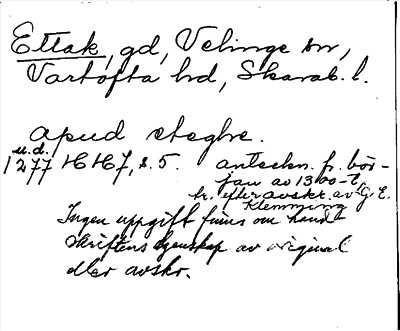 Ettak, gd, Velinge sn,
Vartofta hd, Skarab. l.
apud eteghe.
u.d.
1277 HH7, s. 5. anteckn. fr. bör-
jan av 1300-t,
tr. efter avskr. av G. E.
Klemming
Ingen uppgift finns om hand-
skriftens egenskap av original
eller avskr.